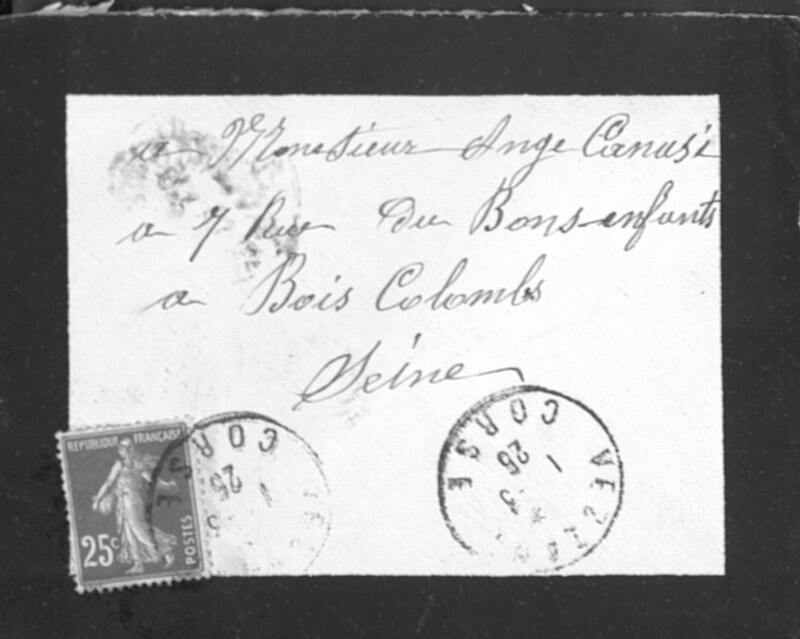 a Monsieur Ange Canasi
a 7 Rue du Bons-enfants
a Bois Colombs
Seine
REPUBLIQUE FRANÇAISE
25c
POSTES
CORSE
25
CORSE
1
25